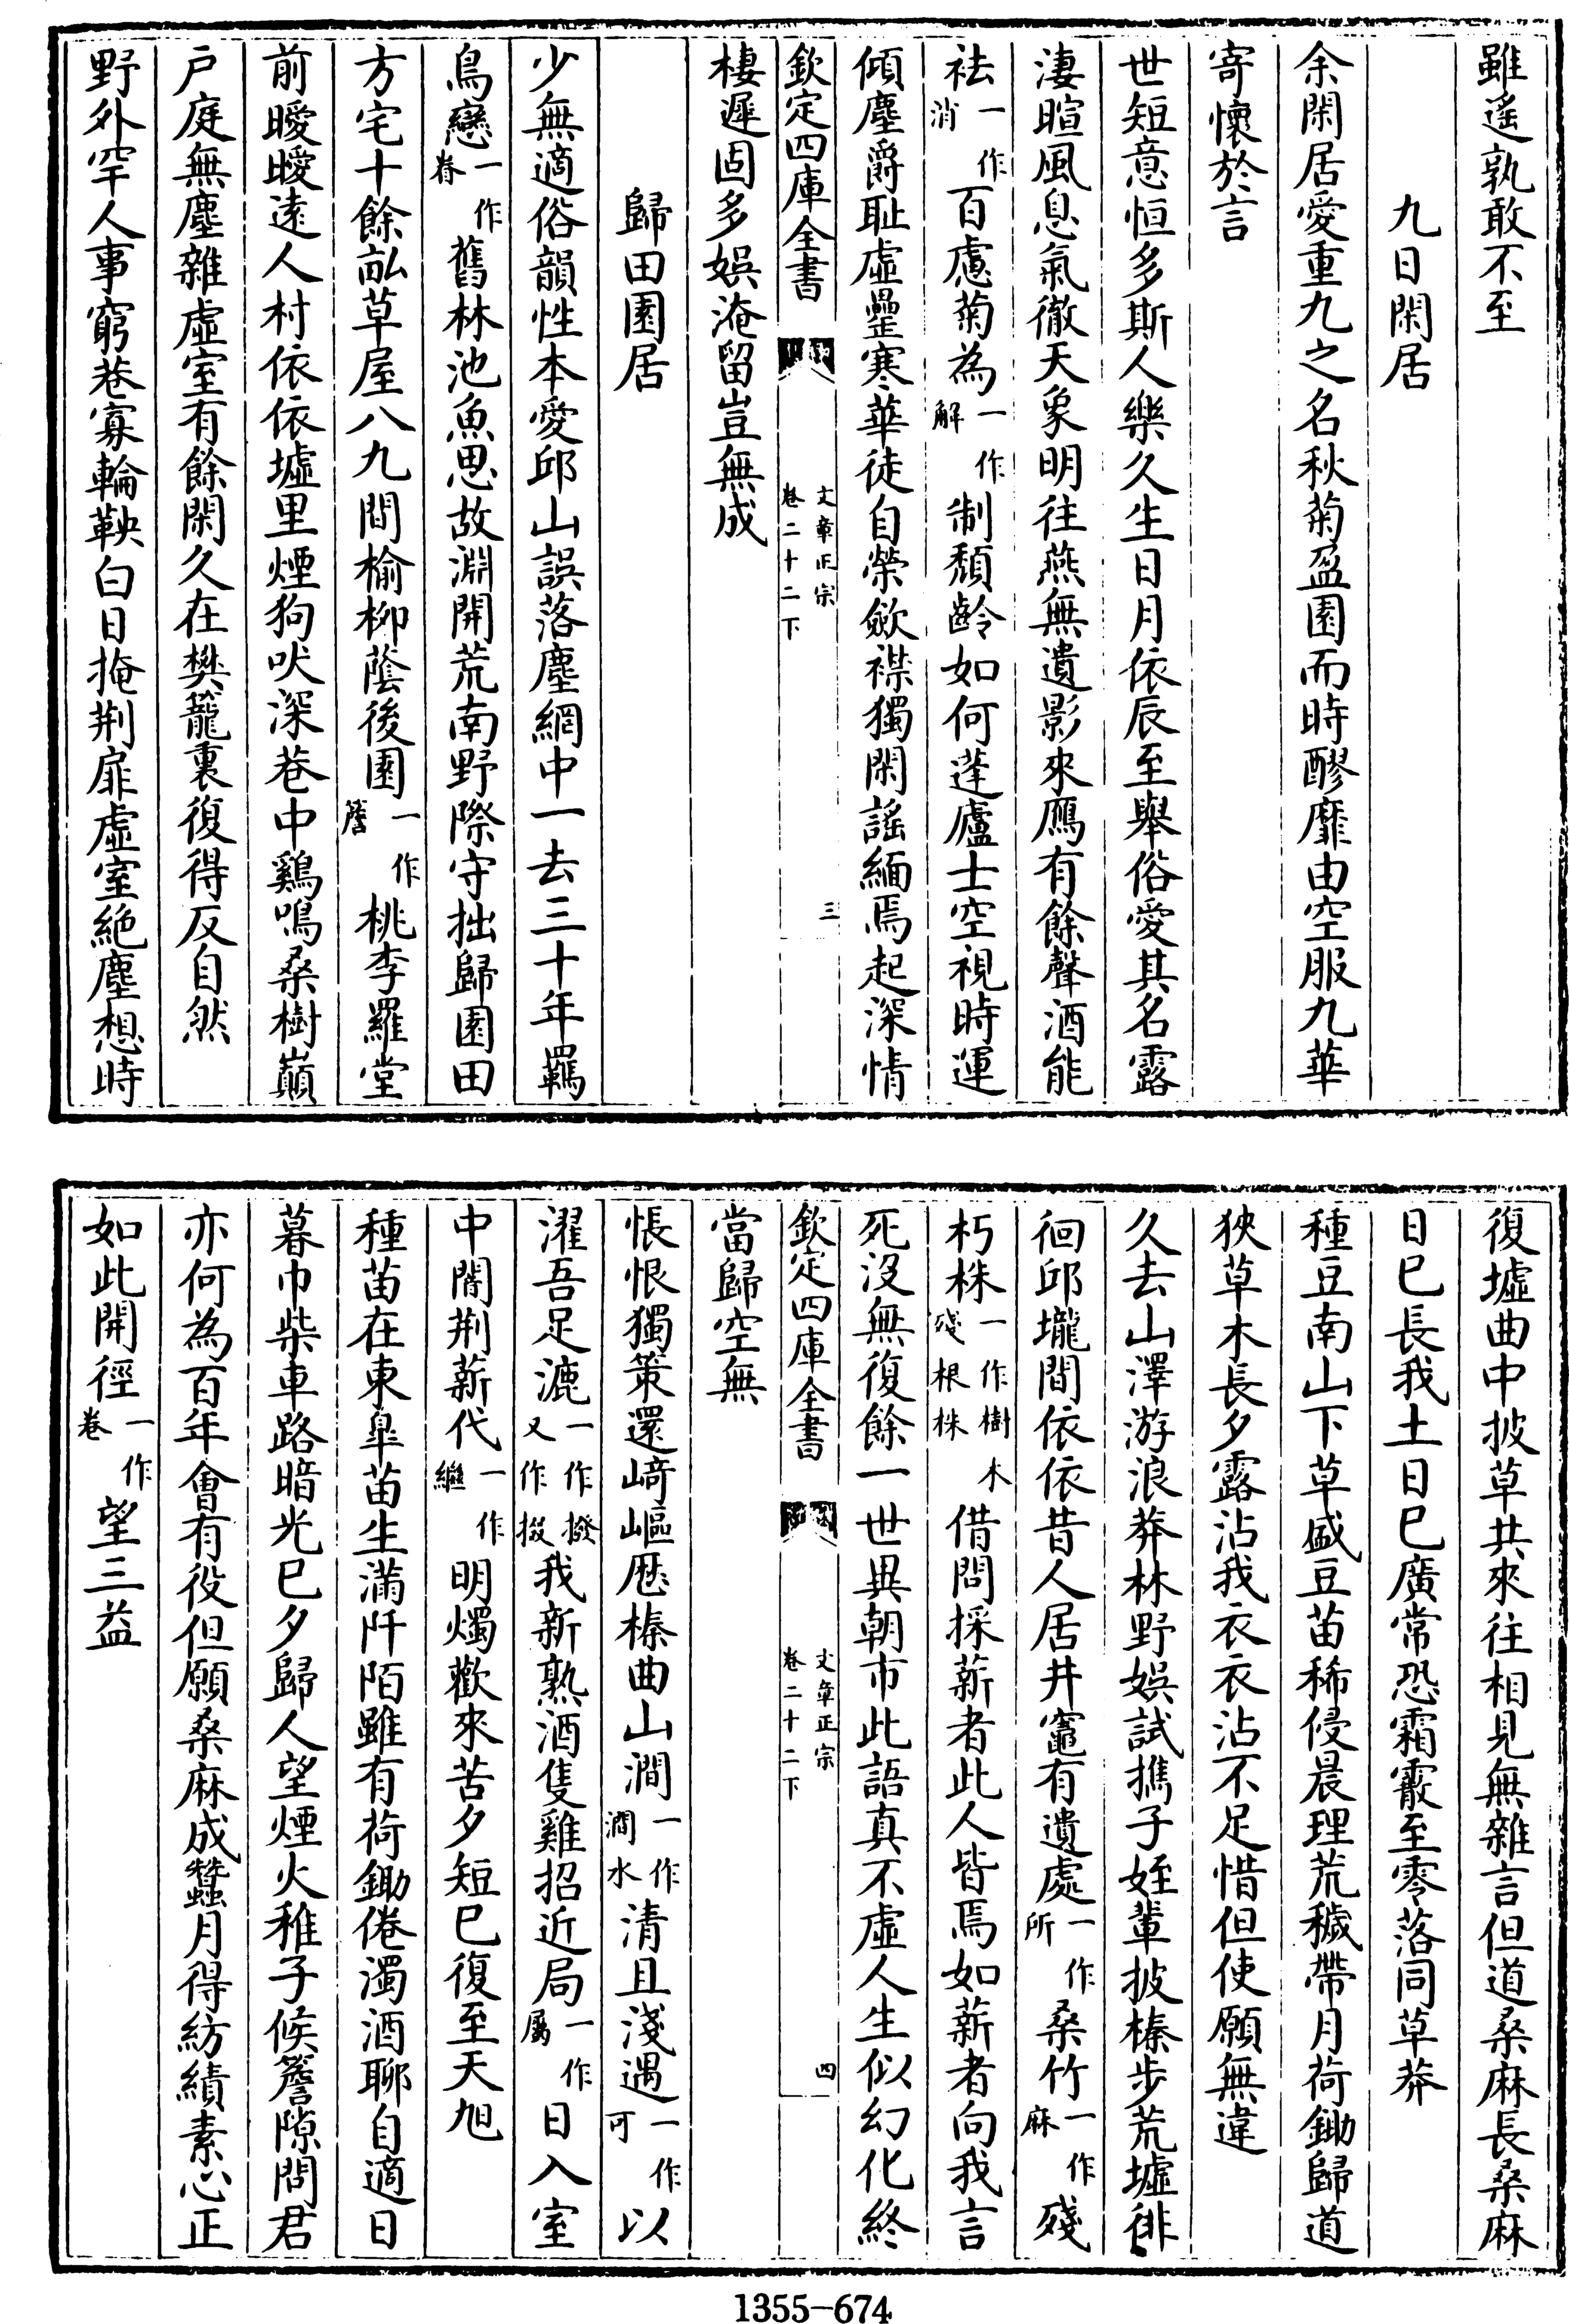 雖遥孰敢不至
九日閑居
余閑居愛重九之名秋菊盈園而時醪靡由空服九華
寄懷於言
世短意恒多斯人樂久生日月依辰至舉俗愛其名露
淒暄風息氣徹天象明往燕無遺影來鴈有餘聲酒能
祛一作消百慮菊為一作解制頽齡如何蓬廬士空視時運
傾塵爵耻虛罍寒華徒自榮斂襟獨閑謡緬焉起深情
欽定四庫全書 文章正宗 卷二十二下 三
棲遲固多娯淹留豈無成
歸田園居
少無適俗韻性本愛邱山誤落塵網中一去三十年羈
鳥戀一作眷舊林池魚思故淵開荒南野際守拙歸園田
方宅十餘畝草屋八九間榆柳蔭後園一作簷桃李羅堂
前曖曖遠人村依依墟里煙狗吠深巷中鷄鳴桑樹巔
户庭無塵雜虛室有餘閑久在樊籠裏復得反自然
野外罕人事窮巷寡輪鞅白日掩荆扉虛室絶塵想時
復墟曲中披草共來往相見無雜言但道桑麻長桑麻
日已長我土日已廣常恐霜霰至零落同草莽
種豆南山下草盛豆苗稀侵晨理荒穢帶月荷鋤歸道
狹草木長夕露沾我衣衣沾不足惜但使願無違
久去山澤游浪莽林野娯試擕子姪輩披榛步荒墟徘
徊邱壠間依依昔人居井竈有遺處一作所桑竹一作麻殘
朽株一作樹木殘根株借問採薪者此人皆焉如薪者向我言
死没無復餘一世異朝市此語真不虛人生似幻化終
欽定四庫全書 文章正宗 卷二十二下 四
當歸空無
悵恨獨策還﨑嶇歴榛曲山澗一作澗水清且淺遇一作可以
濯吾足漉一作撥又作掇我新熟酒隻雞招近局一作屬日入室
中闇荆薪代一作繼明燭歡來苦夕短已復至天旭
種苗在東臯苗生滿阡陌雖有荷鋤倦濁酒聊自適日
暮巾柴車路暗光已夕歸人望煙火稚子候簷隙問君
亦何為百年會有役但願桑麻成蠶月得紡績素心正
如此開徑一作卷望三益
1355-674